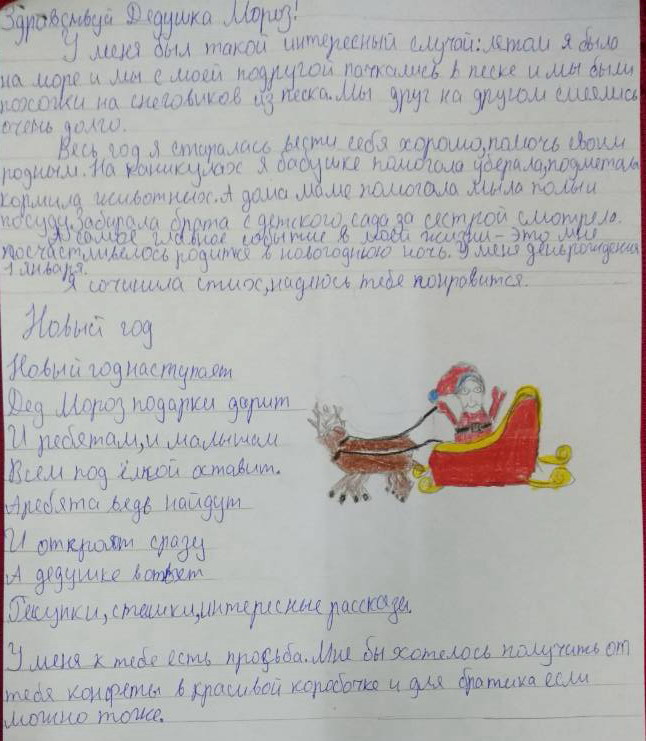 Здравствуй Дедушка Мороз!
У меня был такой интересный случай: летом я была
на море и мы с моей подругой пачкались в песке и мы были
похожи на снеговиков из песка. Мы друг на другом смеялись
очень долго.
Весь год я старалась вести себя хорошо, помочь своим
родным. На каникулах я бабушке помогала убирала, подметала
кормила животных. А дома маме помогала мыла полы и
посуду, забирала брата с детского сада, за сестрой смотрела.
А самое главное событие в моей жизни - это мне
посчастливелось родится в новогоднюю ночь. У меня день рождения
1 января.
Я сочинила стих, надеюсь тебе понравится.
Новый год
Новый год наступает
Дед Мороз подарки дарит
И ребятам, и малышам
Всем под ёлкой оставит.
А ребята ведь найдут
И откроят сразу
А дедушке в ответ
Рисунки, стешки, интересные рассказы.
У меня к тебе есть просьба. Мне бы хотелось получить от
тебя конфеты в красивой коробочке и для братика если
можно тоже.